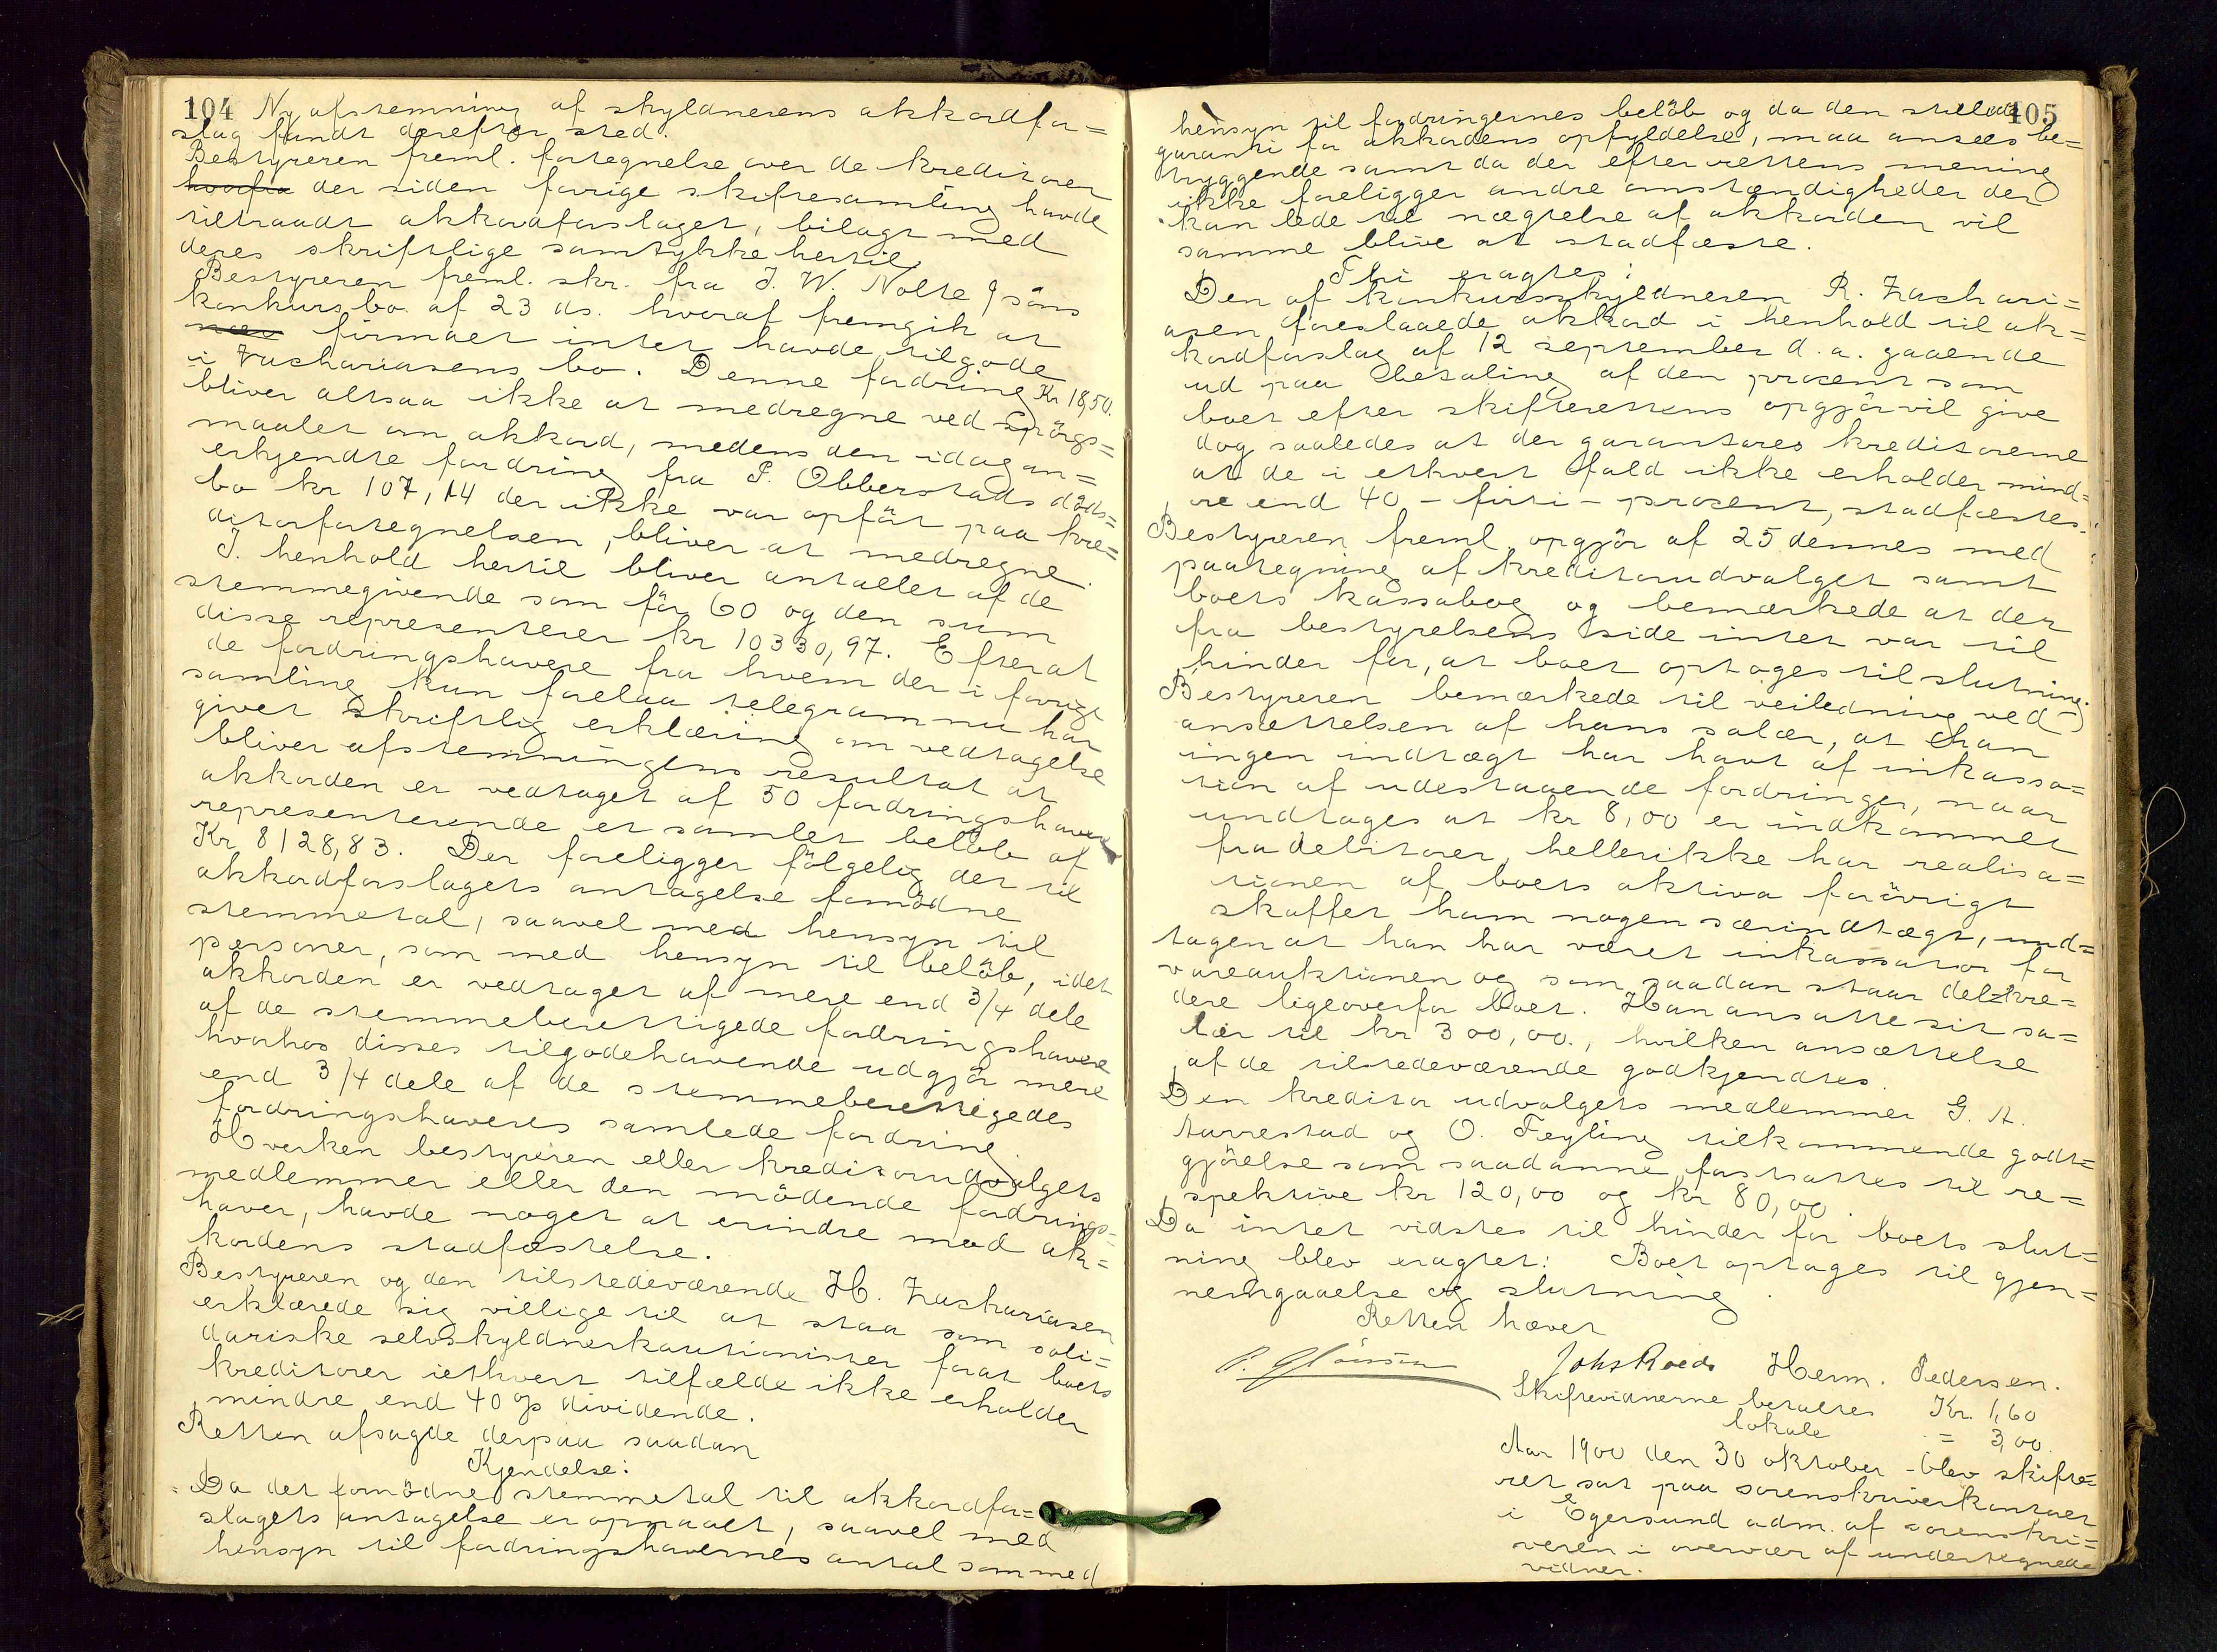 104 Ny afstemning af skyldnerens akkordfor=
slag fandt derefter sted.
Bestyreren freml. fortegnelse over de kreditorer
hvorfra der siden forrige skiftesamling havde
tiltraadt akkordforslaget, bilagt med
deres skriftlige samtykke hertil.
Bestyreren freml. skr. fra J. W. Nolte & söns
konkursbo af 23 ds. hvoraf fremgik at
firmaet intet havde tilgode
i Zachariasens bo. Denne fordring Kr 18,50.
bliver altsaa ikke at medregne ved spörgs=
maalet om akkord, medens den idag an=
erkjendte fordring fra P. Obberstads döds=
bo kr 107,14 der ikke var opfört paa kre=
ditorfortegnelsen, bliver at medregne.
I henhold hertil bliver antallet af de
stemmegivende som för 60 og den sum
disse representerer kr 10330,97. Efterat
de fordringshavere fra hvem der i forrige
samling kun forelaa telegram nu har
givet skriftlig erklæring om vedtagelse
bliver afstemningens resultat at
akkorden er vedtaget af 50 fordringshavere
representerende et samlet belöb af
Kr 8128,83. Der foreligger fölgelig det til
akkordforslagets antagelse fornödne
stemmetal, saavel med hensyn til
personer, som med hensyn til belöb, idet
akkorden er vedtaget af mere end 3/4 dele
af de stemmeberettigede fordringshavere
hvorhos disses tilgodehavende udgjör mere
end 3/4 dele af de stemmeberettigedes
fordringshaveres samlede fordring.
Hverken bestyreren eller kreditorudvalgets
medlemmer eller den mödende fordrings=
haver, havde noget at erindre mod ak=
kordens stadfæstelse.
Bestyreren og den tilstedeværende H. Zachariasen
erklærede sig villige til at staa som soli=
dariske selvskyldnerkautionister forat boets
kreditorer iethvert tilfælde ikke erholder
mindre end 40 % dividende.
Retten afsagde derpaa saadan
Kjendelse:
Da det fornödne stemmetal til akkordfor=
slagets antagelse er opnaaet, saavel med
hensyn til fordringshavernes antal som med
105
hensyn til fordringernes belöb og da den stillede
garanti for akkordens opfyldelse, maa ansees be=
tryggende samt da der efter rettens mening
ikke foreligger andre omstændigheder der
kan lede til nægtelse af akkorden vil
samme blive at stadfæste.
Thi eragtes:
Den af konkursskyldneren R. Zachari=
asen foreslaaede akkord i henhold til ak=
kordforslag af 12 september d. a. gaaende
ud paa betaling af den procent som
boet efter skifterettens opgjör vil give
dog saaledes at der garanteres kreditorerne
at de i ethvert fald ikke erholder mind=
re end 40 - firti - procent, stadfæstes.
Bestyreren freml. opgjör af 25 dennes med
paategning af kreditorudvalget samt
boets kassabog og bemærkede at der
fra bestyrelsens side intet var til
hinder for, at boet optoges til slutning.
Bestyreren bemærkede til veiledning ved
ansættelsen af hans salær, at han
ingen indtægt har havt af inkassa=
tion af udestaaende fordringer, naar
undtages at kr 8,00 er indkommet
fra debitorer, hellerikke har realisa=
tionen af boets aktiva forövrigt
skaffet ham nogen særindtægt, und=
tagen at han har været inkassator for
vareauktionen og som saadan staar delkre=
dere ligeoverfor boet. Han ansatte sit sa=
lær til kr 300,00., hvilken ansættelse
af de tilstedeværende godkjendtes.
Den kreditorudvalgets medlemmer G. A.
Tarrestad og O. Feyling tilkommende godt=
gjörelse som saadanne fastsattes til re=
spektive kr 120,00 og kr 80,00.
Da intet vidstes til hinder for boets slut=
ning blev eragtet: Boet optages til gjen=
nemgaaelse og slutning.
Retten hævet
Johs Roeds Herm. Pedersen.
Skiftevidnerne betaltes Kr. 1,60
lokale = 3,00.
Aar 1900 den 30 oktober blev skifte=
ret sat paa sorenskriverkontoret
i Egersund adm. af sorenskri=
veren i overvær af undertegnede
vidner.